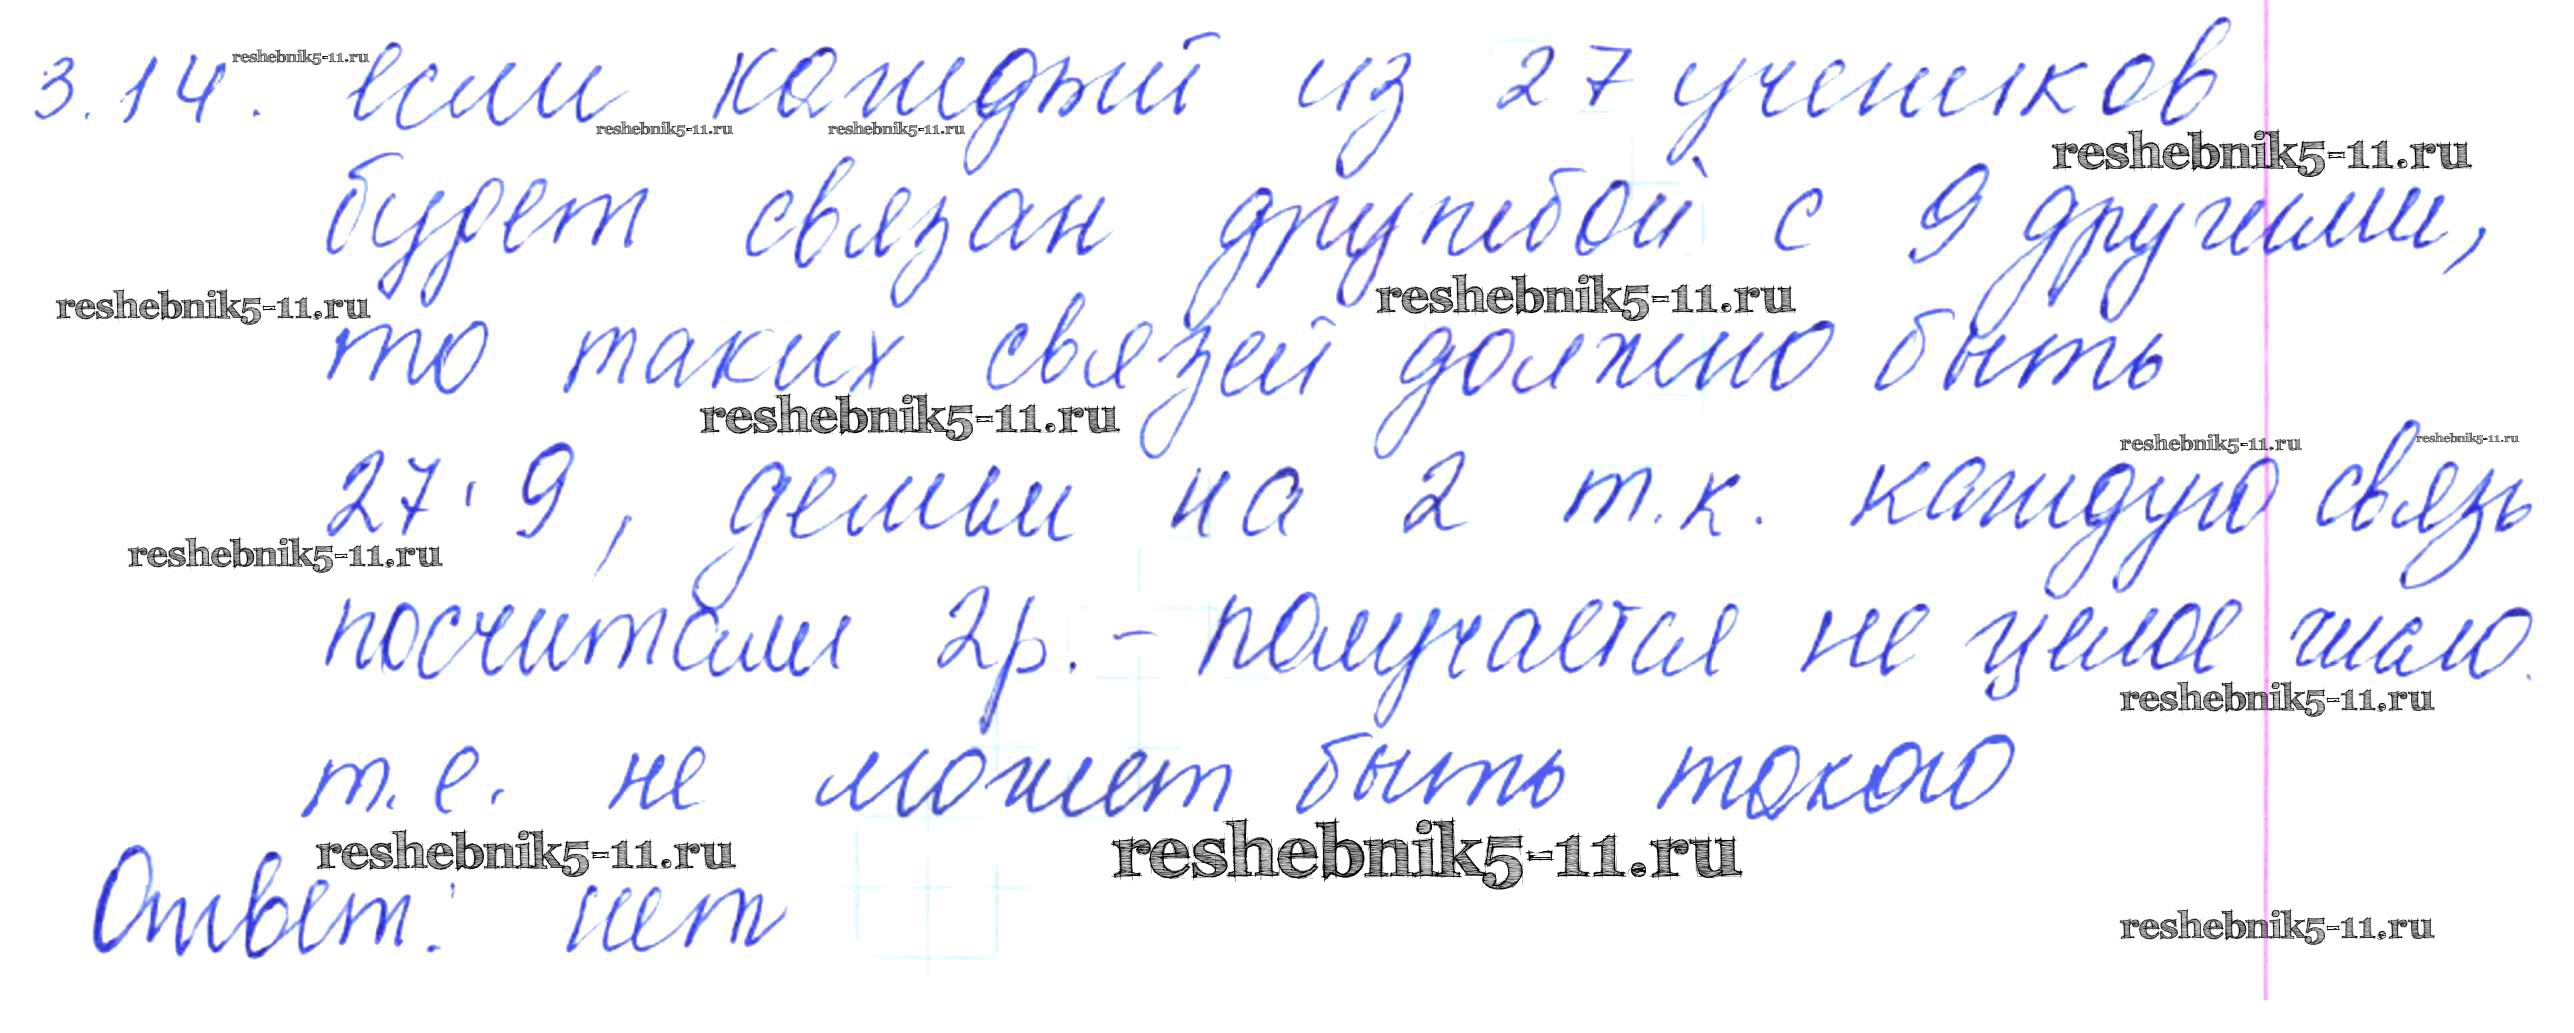 reshebnik5-11.ru
3.14. если каждый из 27 учеников
reshebnik5-11.ru reshebnik5-11.ru
reshebnik5-11.ru
будет связан дружбой с 9 другими,
reshebnik5-11.ru reshebnik5-11.ru
то таких связей должно быть
reshebnik5-11.ru
reshebnik5-11.ru reshebnik5-11.ru
27·9, делим на 2 т.к. каждую связь
reshebnik5-11.ru
посчитали 2р. – получается не целое число.
reshebnik5-11.ru
т.е. не может быть такого
reshebnik5-11.ru reshebnik5-11.ru
Ответ: нет
reshebnik5-11.ru